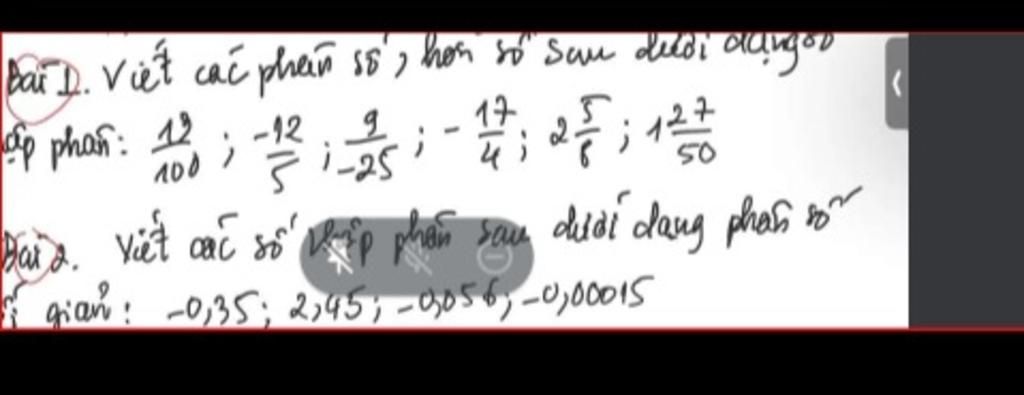 Bài 1. Viết các phân số, hỗn số sau dưới dạng số
ập phân: 13/100 ; -12/5 ; 9/-25 ; - 17/4 ; 2 5/8 ; 1 27/50
Bài 2. Viết các số thập phân sau dưới dạng phân số
giản: -0,35; 2,45; -0,056; -0,00015